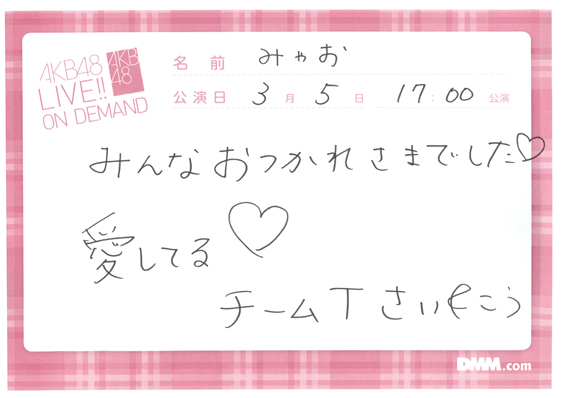 AKB48
LIVE!!
ON DEMAND
AKB
48
名前 みゃお
公演日 3月5日 17:00 公演
みんなおつかれさまでした♡
愛してる♡
チームT さいくこう
DMM.com